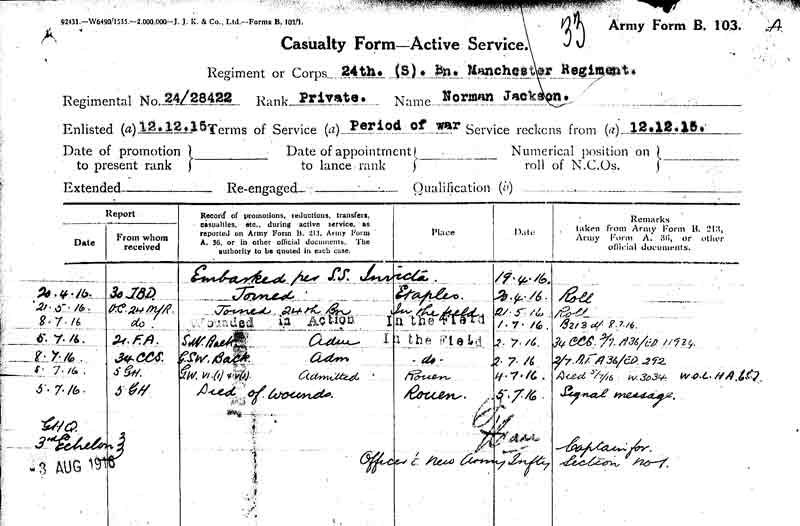 92431.—W6490/1515.—2,000,000—J. J. K. & Co., Ltd.—Forms B. 103/1.
33
Army Form B. 103.
A
Casualty Form—Active Service.
Regiment or Corps 24th. (S). Bn. Manchester Regiment.
Regimental No. 24/28422 Rank Private. Name Norman Jackson.
Enlisted (a) 12.12.15. Terms of Service (a) Period of war Service reckons from (a) 12.12.15.
Date of promotion to present rank } Date of appointment to lance rank } Numerical position on roll of N.C.Os. }
Extended Re-engaged Qualification (b)
Report Record of promotions, reductions, transfers, casualties, etc., during active service, as reported on Army Form B. 213, Army Form A. 36, or in other official documents. The authority to be quoted in each case. Place Date Remarks taken from Army Form B. 213, Army Form A. 36, or other official documents.
Date From whom received
Embarked per S.S. Invicta. 19.4.16.
20.4.16. 30 IBD. Joined Etaples. 20.4.16. Roll
21.5.16. O.C. 24 M/R. Joined 24th Bn In the field 21.5.16 Roll
8.7.16 do Wounded in Action In the Field 1.7.16. B213 d/ 8.7.16.
5.7.16 21.F.A. S.W. Back Adm In the Field 2.7.16. 34 CCS. A36/ED
8.7.16 34 CCS. G.S.W. Back Adm do. 2.7.16 A36/ED 292
5.7.16 5 GH. G.W. Admitted Rouen 4.7.16. Died 5/7/16 W.3034
5.7.16. 5 GH Died of wounds. Rouen. 5.7.16. Signal message.
GHQ.
3rd Echelon
3 AUG 1916
Captain for
Officer i/c New Army Infty Section No 1.